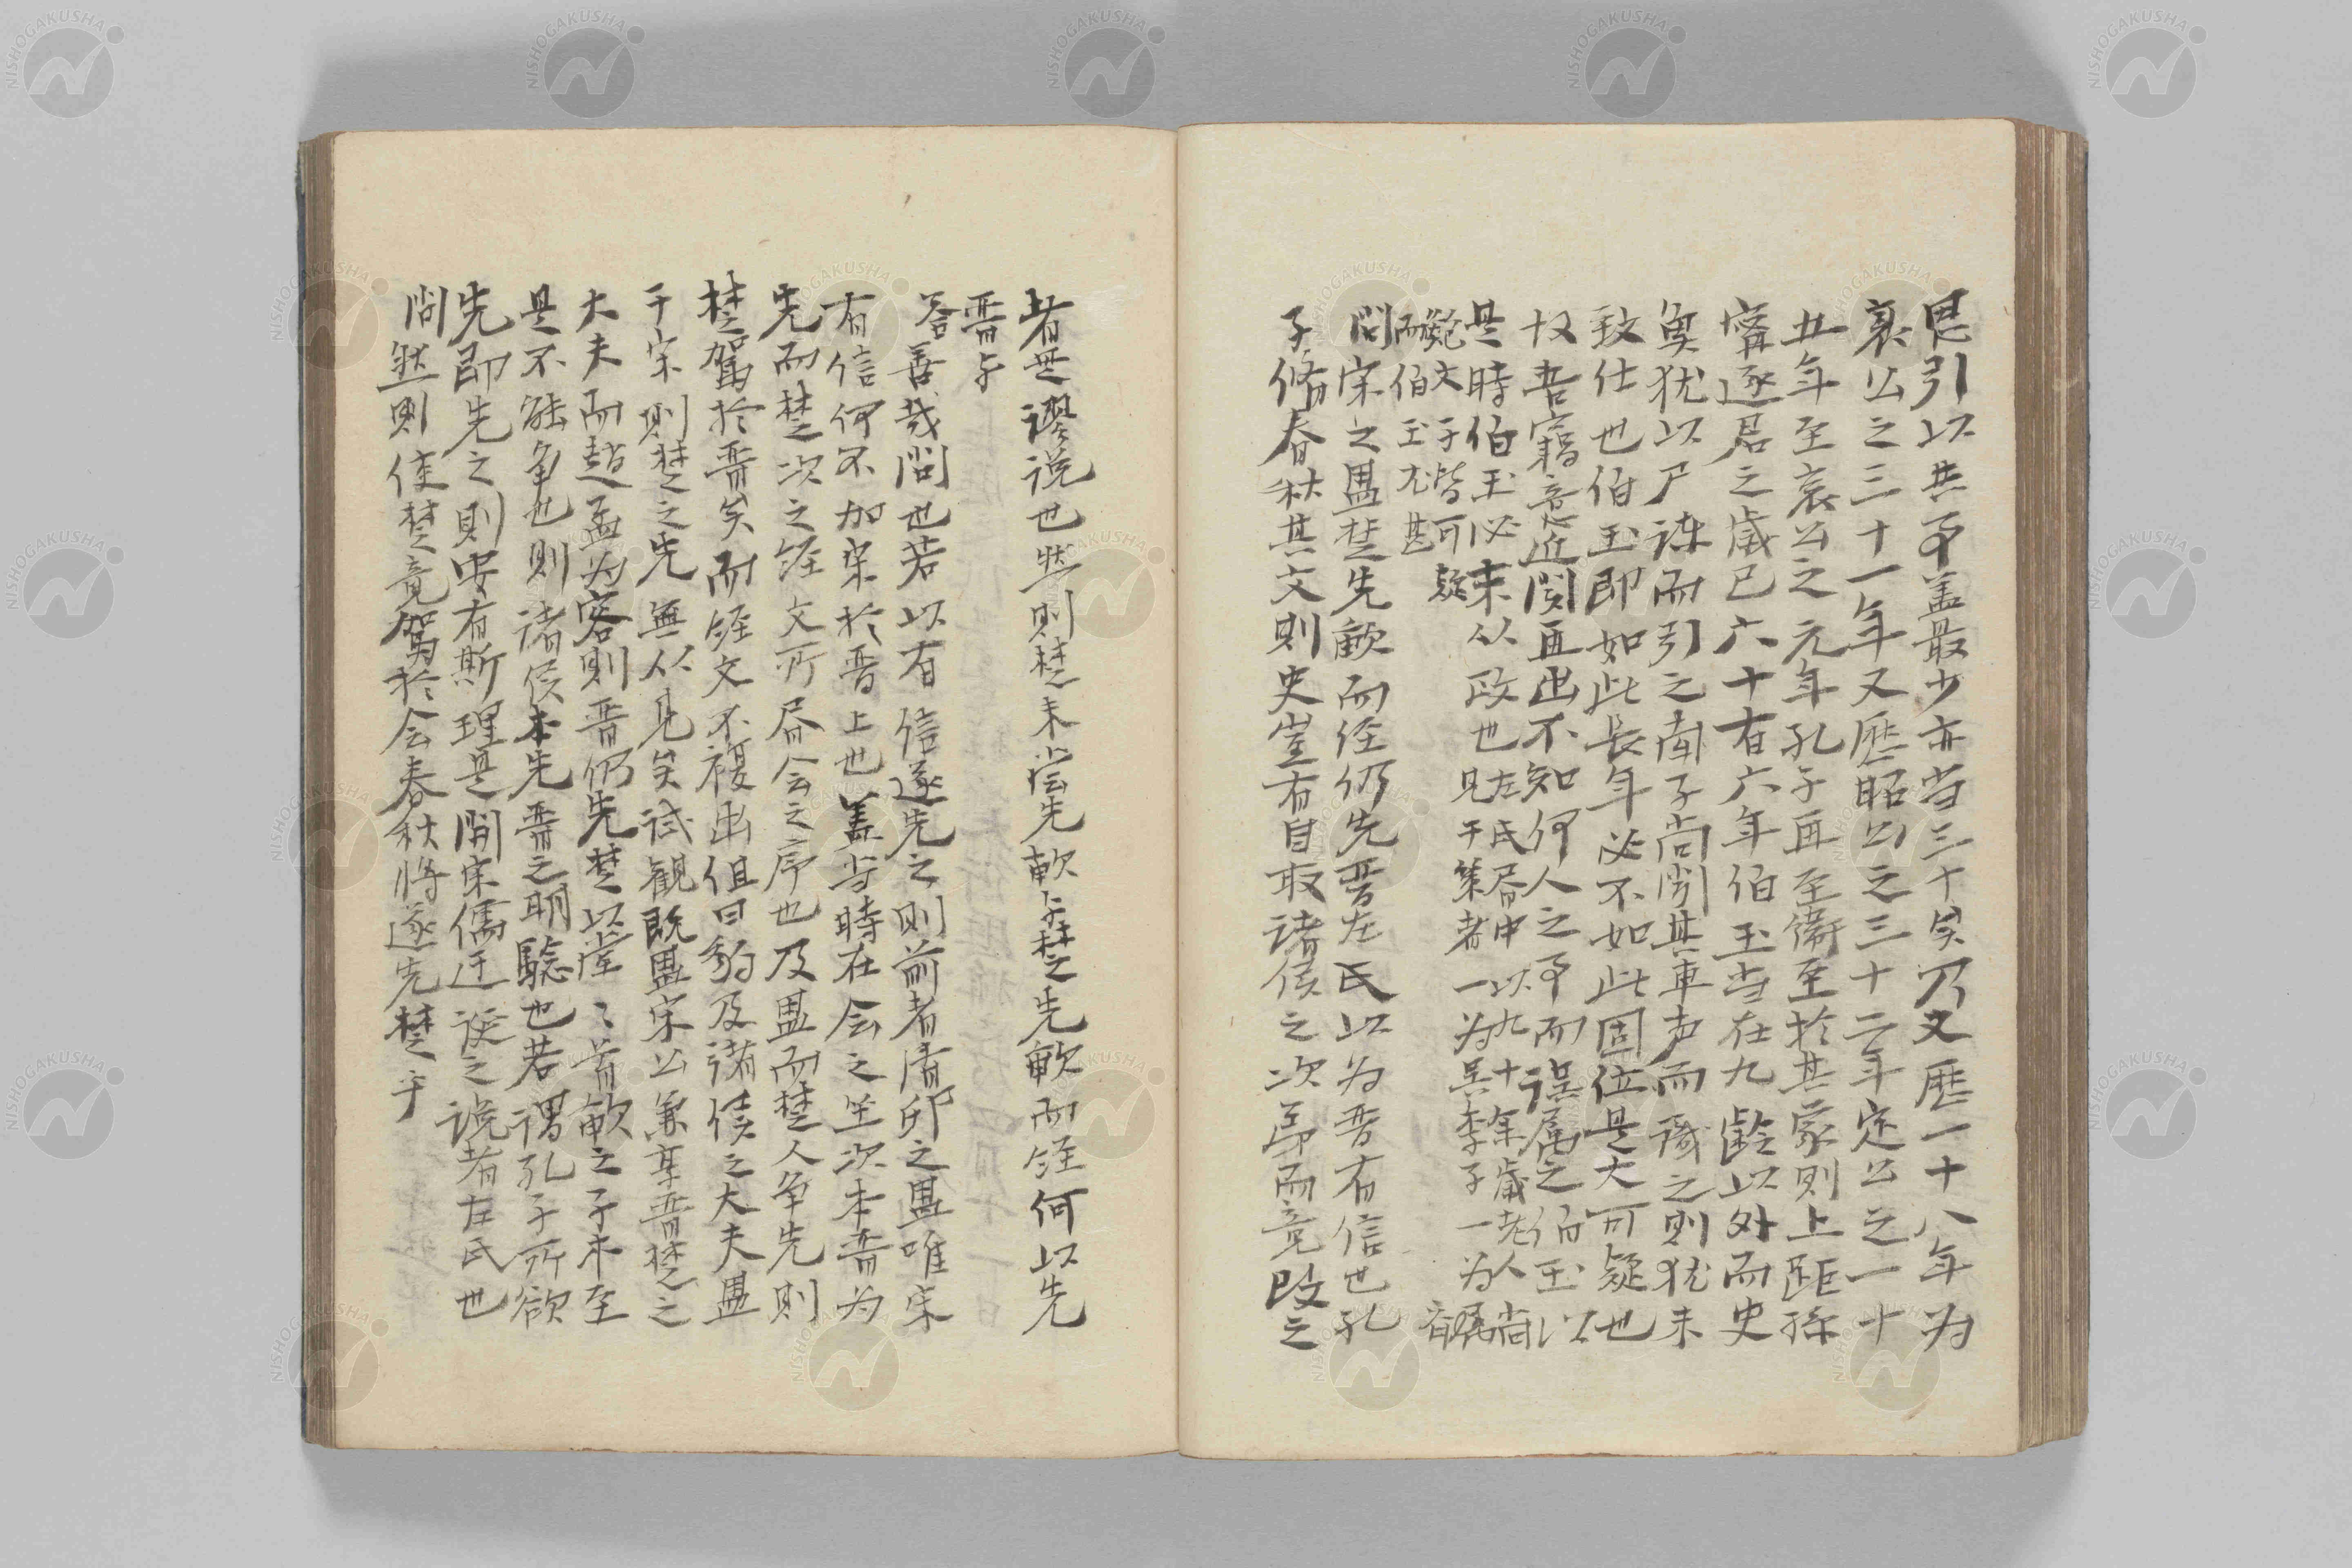 思引以共事盖最少亦当三十矣乃又歷一十八年为
襄公之三十一年又歷昭公之三十二年定公之一十
五年至哀公之元年孔子再至衛至於其家則上距孫
寗逐君之歲已六十有六年伯玉当在九齡以外而史
魚犹以尸諌而引之南子尚闻其車声而識之則犹未
致仕也伯玉即如此長年必不如此固位是大可疑也
故吾竊意近関再出不知何人之事而誤属之伯玉以
是時伯玉必未从政也左氏昏中以九十余歲老人尚
見于策者一为吴季子一为
疑文子皆可疑
而伯玉尤甚
問宋之盟楚先歃而経仍先晋左氏以为晋有信也孔
子修春秋其文則史豈有自取諸侯之次第而竟改之
者是謬説也然則楚未嘗先歃与楚先歃而経何以先
晋与
荅善哉問也若以有信遂先之則前者清邱之盟唯宋
有信何不加宋於晋上也盖当時在会之坐次本晋为
先而楚次之経文所昏会之序也及盟而楚人争先則
楚駕於晋矣而経文不複出但曰豹及諸侯之大夫盟
于宋則楚之先無从見矣試観既盟宋公兼享晋楚之
大夫而趙孟为客則晋仍先楚以堂〻首歃之子木至
是不能争也則諸侯本先晋之明驗也若謂孔子所欲
先即先之則安有斯理是開宋儒迂誕之説者左氏也
問然則使楚竟駕於会春秋将遂先楚乎
NISHOGAKUSHA